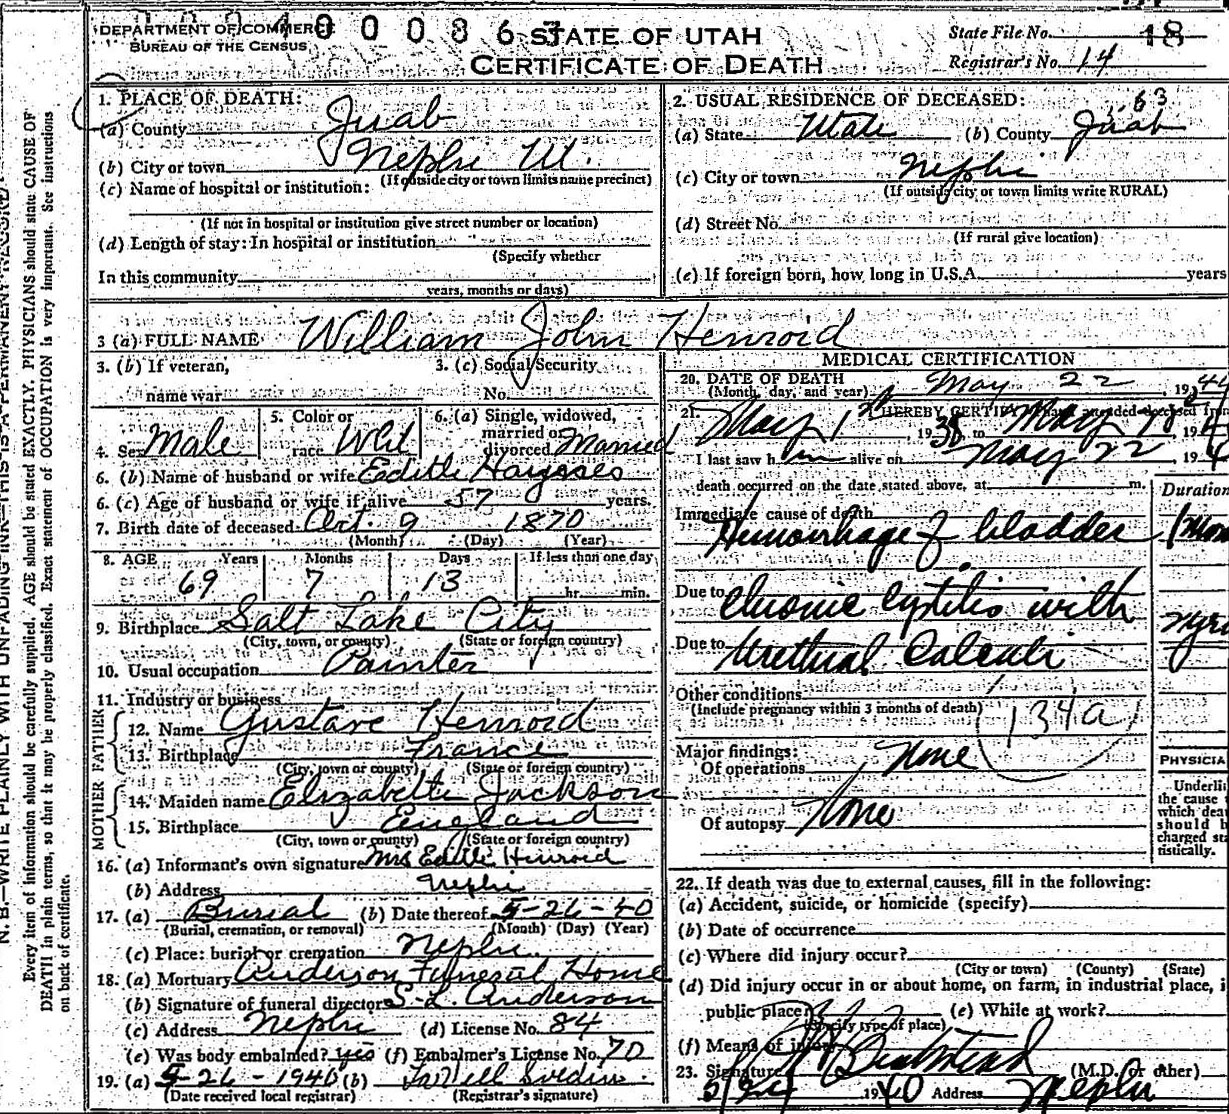 DEPARTMENT OF COMMERCE
BUREAU OF THE CENSUS
400086
STATE OF UTAH
CERTIFICATE OF DEATH
State File No. 18
Registrar's No. 14
N. B.—WRITE PLAINLY WITH UNFADING INK—THIS IS A PERMANENT RECORD.
Every item of information should be carefully supplied. AGE should be stated EXACTLY. PHYSICIANS should state CAUSE OF
DEATH in plain terms, so that it may be properly classified. Exact statement of OCCUPATION is very important. See instructions
on back of certificate.
1. PLACE OF DEATH:
(a) County Juab
(b) City or town Nephi Ut.
(If outside city or town limits name precinct)
(c) Name of hospital or institution:
(If not in hospital or institution give street number or location)
(d) Length of stay: In hospital or institution
(Specify whether
In this community
years, months or days)
2. USUAL RESIDENCE OF DECEASED: 63
(a) State Utah (b) County Juab
(c) City or town Nephi
(If outside city or town limits write RURAL)
(d) Street No.
(If rural give location)
(e) If foreign born, how long in U.S.A. years
3 (a) FULL NAME William John Henroid
3. (b) If veteran,
name war
3. (c) Social Security
No.
4. Sex Male
5. Color or
race Whit
6. (a) Single, widowed,
married or
divorced Married
6. (b) Name of husband or wife Edith
6. (c) Age of husband or wife if alive 57 years.
7. Birth date of deceased Oct. 9 1870
(Month) (Day) (Year)
8. AGE Years Months Days If less than one day
69 7 13 hr. min.
9. Birthplace Salt Lake City
(City, town, or county) (State or foreign country)
10. Usual occupation Painter
11. Industry or business
FATHER
12. Name Gustave Henroid
13. Birthplace France
(City, town or county) (State or foreign country)
MOTHER
14. Maiden name Elizabeth Jackson
15. Birthplace England
(City, town or county) (State or foreign country)
16. (a) Informant's own signature Mrs Edith Henroid
(b) Address Nephi
17. (a) Burial (b) Date thereof 5-26-40
(Burial, cremation, or removal) (Month) (Day) (Year)
(c) Place: burial or cremation Nephi
18. (a) Mortuary Anderson Funeral Home
(b) Signature of funeral director S. L. Anderson
(c) Address Nephi (d) License No. 84
(e) Was body embalmed? yes (f) Embalmer's License No. 70
19. (a) 5-26-1940 (b)
(Date received local registrar) (Registrar's signature)
MEDICAL CERTIFICATION
20. DATE OF DEATH
(Month, day, and year) May 22 19
21. I HEREBY CERTIFY that I attended deceased from
May 1 , 1938 to May 19
I last saw him alive on May 22 19
death occurred on the date stated above, at m.
Duration
Immediate cause of death
Hemorrhage of bladder 1
Due to Chronic Cystitis with
Due to Urethral Calculi
Other conditions
(Include pregnancy within 3 months of death)
134a
Major findings:
Of operations None
Of autopsy None
PHYSICIA
Underli
the cause
which dea
should b
charged sta
tistically.
22. If death was due to external causes, fill in the following:
(a) Accident, suicide, or homicide (specify)
(b) Date of occurrence
(c) Where did injury occur?
(City or town) (County) (State)
(d) Did injury occur in or about home, on farm, in industrial place, i
public place? (e) While at work?
(Specify type of place)
(f) Means of injury
23. Signature (M.D. or other)
5/24 1940 Address Nephi